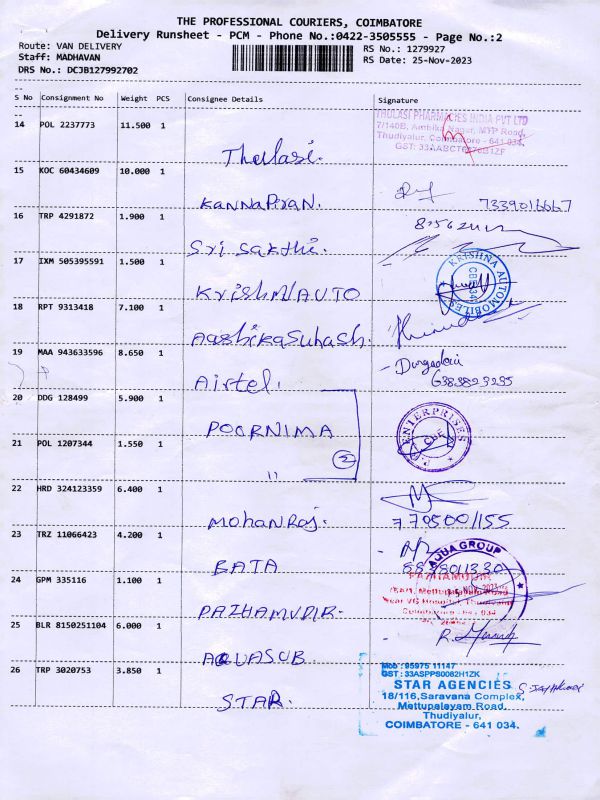 THE PROFESSIONAL COURIERS, COIMBATORE
Delivery Runsheet - PCM - Phone No.:0422-3505555 - Page No.:2
Route: VAN DELIVERY
Staff: MADHAVAN
DRS No.: DCJB127992702
RS No.: 1279927
RS Date: 25-Nov-2023
S No Consignment No Weight PCS Consignee Details Signature
14 POL 2237773 11.500 1
THULASI PHARMACIES INDIA PVT LTD
7/140B, Ambika Nagar, MTP Road,
Thudiyalur, Coimbatore - 641 034.
Thulasi.
15 KOC 60434609 10.000 1
Kannapiran. 7339016667
16 TRP 4291872 1.900 1
Sri Sakthi.
17 IXM 505395591 1.500 1
KRISHNA AUTOMOBILES
Krishna/AUTO
18 RPT 9313418 7.100 1
Aashikasuhash.
19 MAA 943633596 8.650 1
Airtel.
20 DDG 128499 5.900 1
POORNIMA
ENTERPRISES
CBE
21 POL 1207344 1.550 1
"
②
22 HRD 324123359 6.400 1
Mohanraj.
23 TRZ 11066423 4.200 1
BATA
AQUA GROUP
24 GPM 335116 1.100 1
PAZHAMUDIR
PAZHAMUDIR.
25 BLR 8150251104 6.000 1
AQUASUB.
26 TRP 3020753 3.850 1
STAR.
Mob : 95975 11147
GST : 33ASPPS0062H1ZK
STAR AGENCIES
18/116, Saravana Complex,
Mettupalayam Road,
Thudiyalur,
COIMBATORE - 641 034.